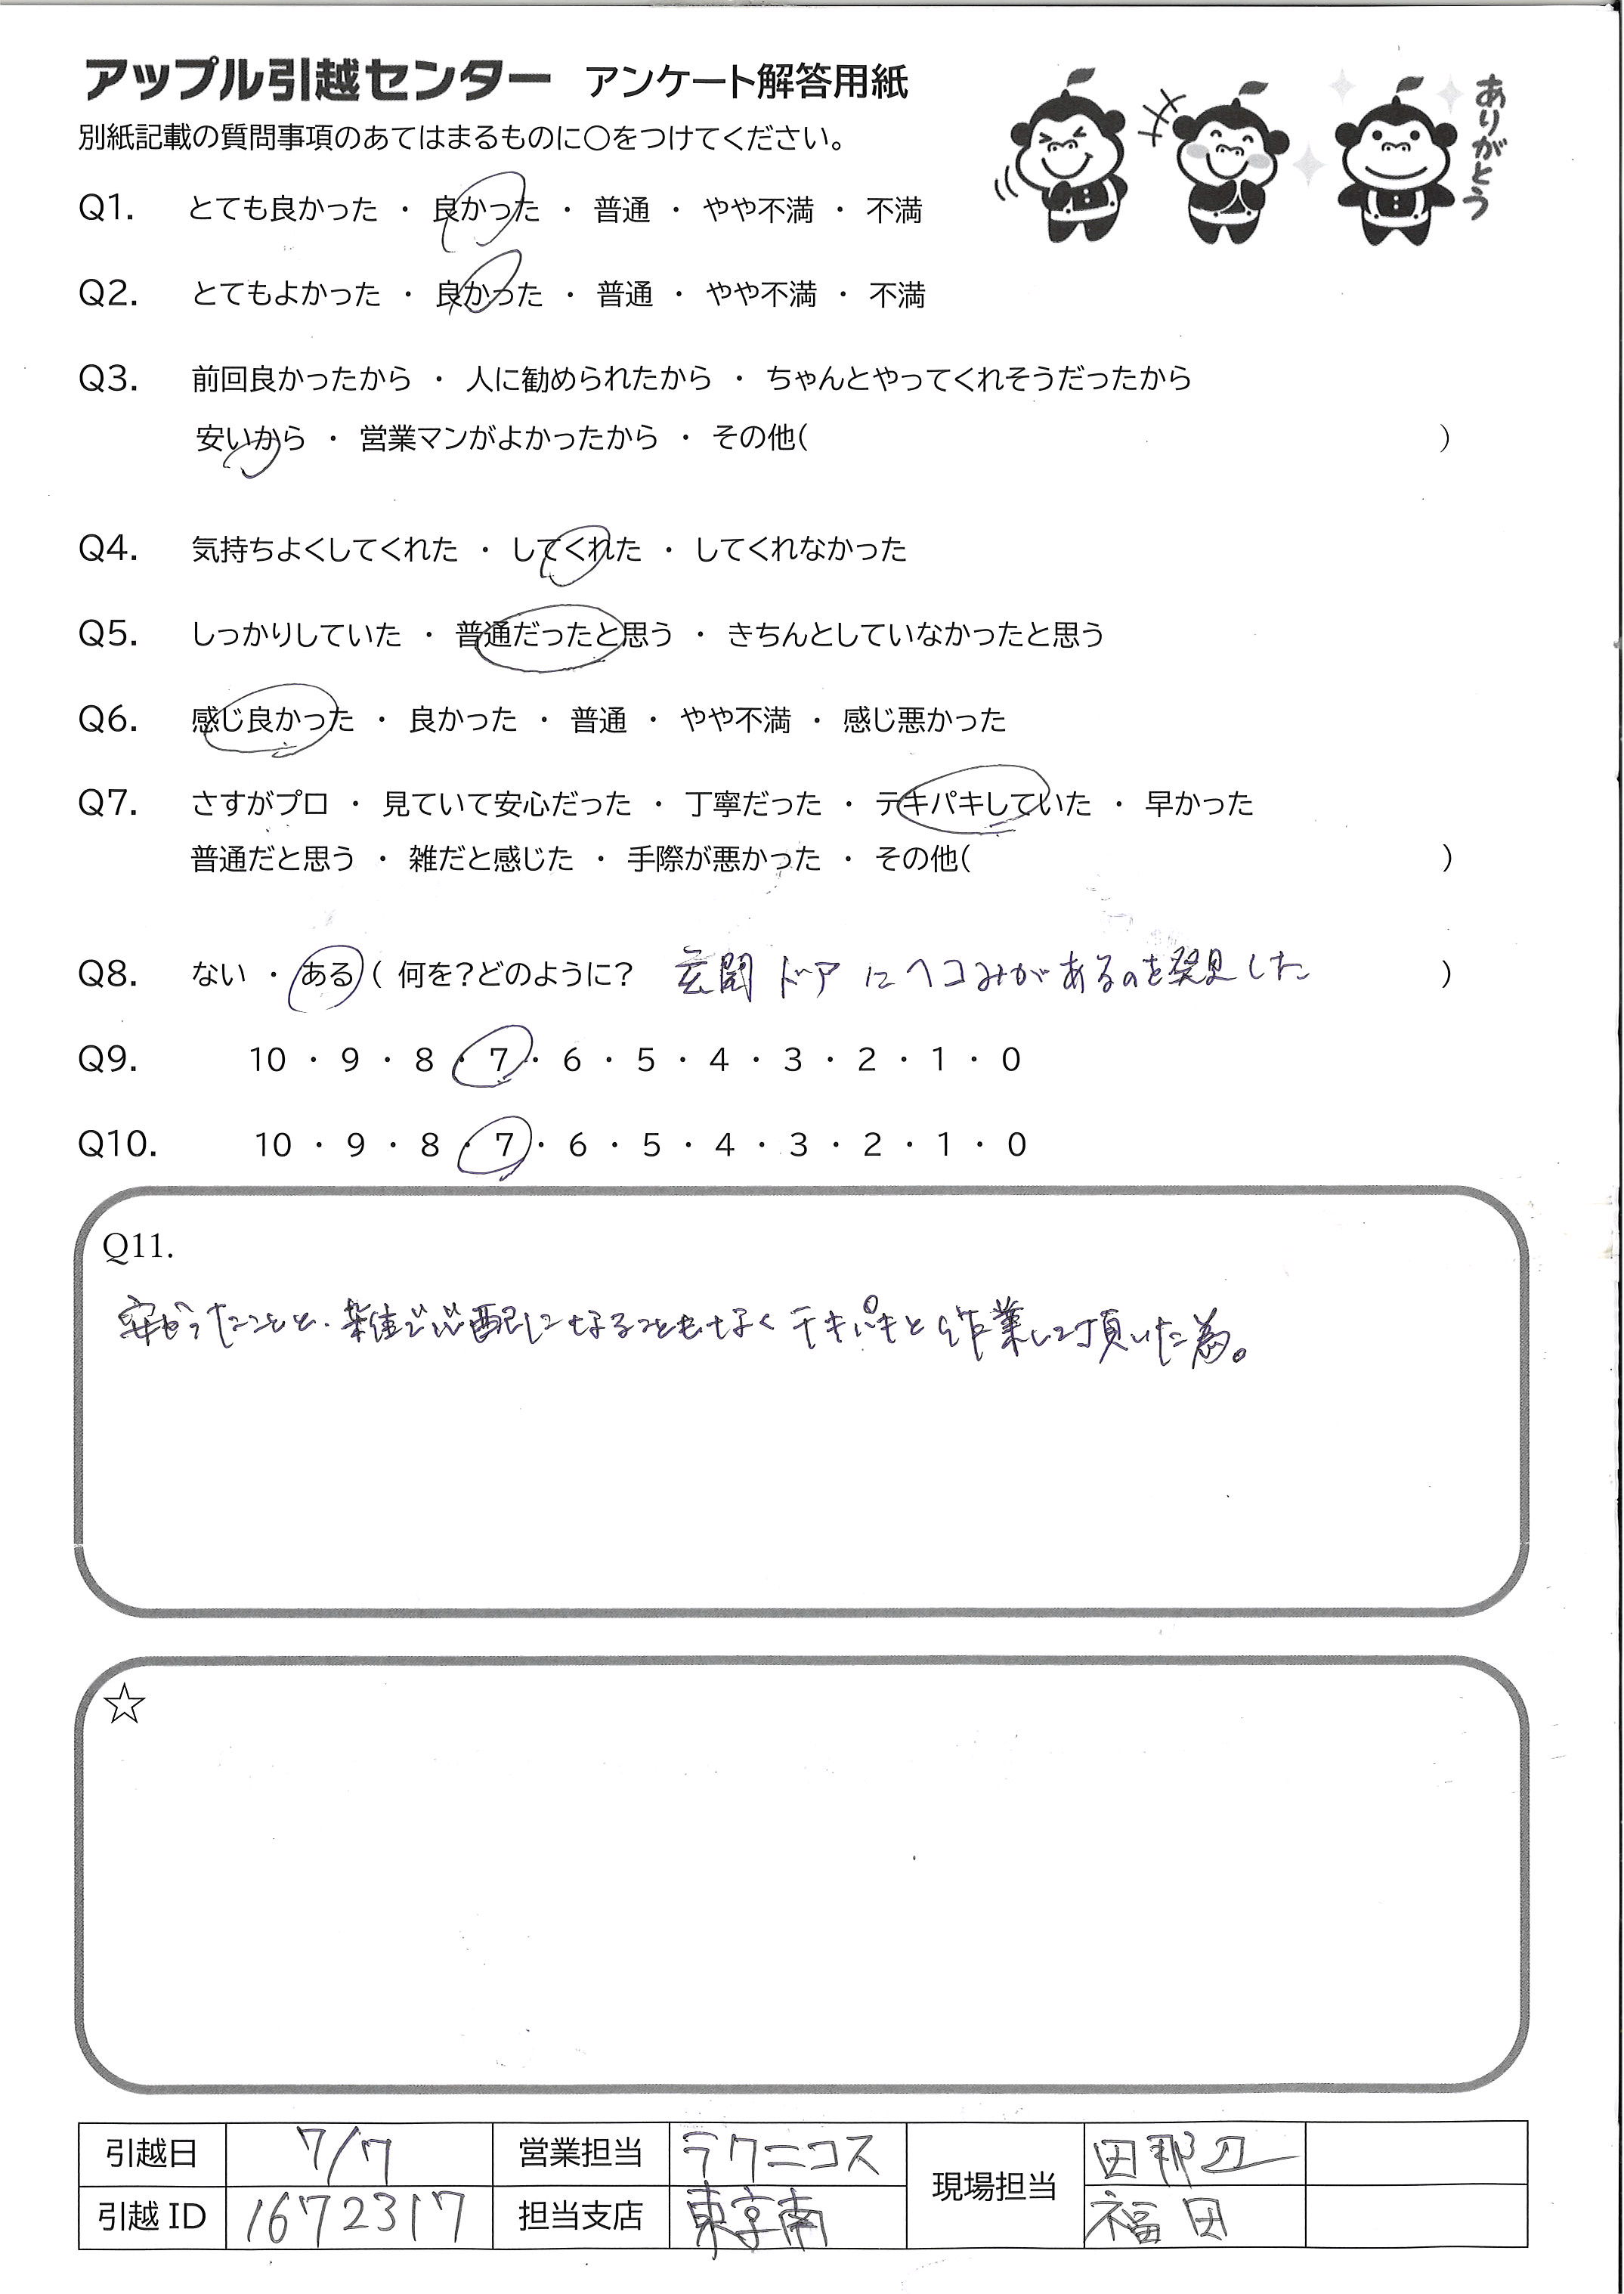 アップル引越センター アンケート解答用紙
別紙記載の質問事項のあてはまるものに〇をつけてください。
ありがとう
Q1. とても良かった ・ 良かった ・ 普通 ・ やや不満 ・ 不満
Q2. とてもよかった ・ 良かった ・ 普通 ・ やや不満 ・ 不満
Q3. 前回良かったから ・ 人に勧められたから ・ ちゃんとやってくれそうだったから
安いから ・ 営業マンがよかったから ・ その他( )
Q4. 気持ちよくしてくれた ・ してくれた ・ してくれなかった
Q5. しっかりしていた ・ 普通だったと思う ・ きちんとしていなかったと思う
Q6. 感じ良かった ・ 良かった ・ 普通 ・ やや不満 ・ 感じ悪かった
Q7. さすがプロ ・ 見ていて安心だった ・ 丁寧だった ・ テキパキしていた ・ 早かった
普通だと思う ・ 雑だと感じた ・ 手際が悪かった ・ その他( )
Q8. ない ・ ある ( 何を?どのように? 玄関ドアにヘコみがあるのを発見した )
Q9. 10 ・ 9 ・ 8 ・ 7 ・ 6 ・ 5 ・ 4 ・ 3 ・ 2 ・ 1 ・ 0
Q10. 10 ・ 9 ・ 8 ・ 7 ・ 6 ・ 5 ・ 4 ・ 3 ・ 2 ・ 1 ・ 0
Q11.
安かったことと、雑で心配になることもなくテキパキと作業して頂いた為。
☆
引越日 7/7 営業担当 ラクニコス 現場担当 田那辺
引越 ID 1672317 担当支店 東京南 福田